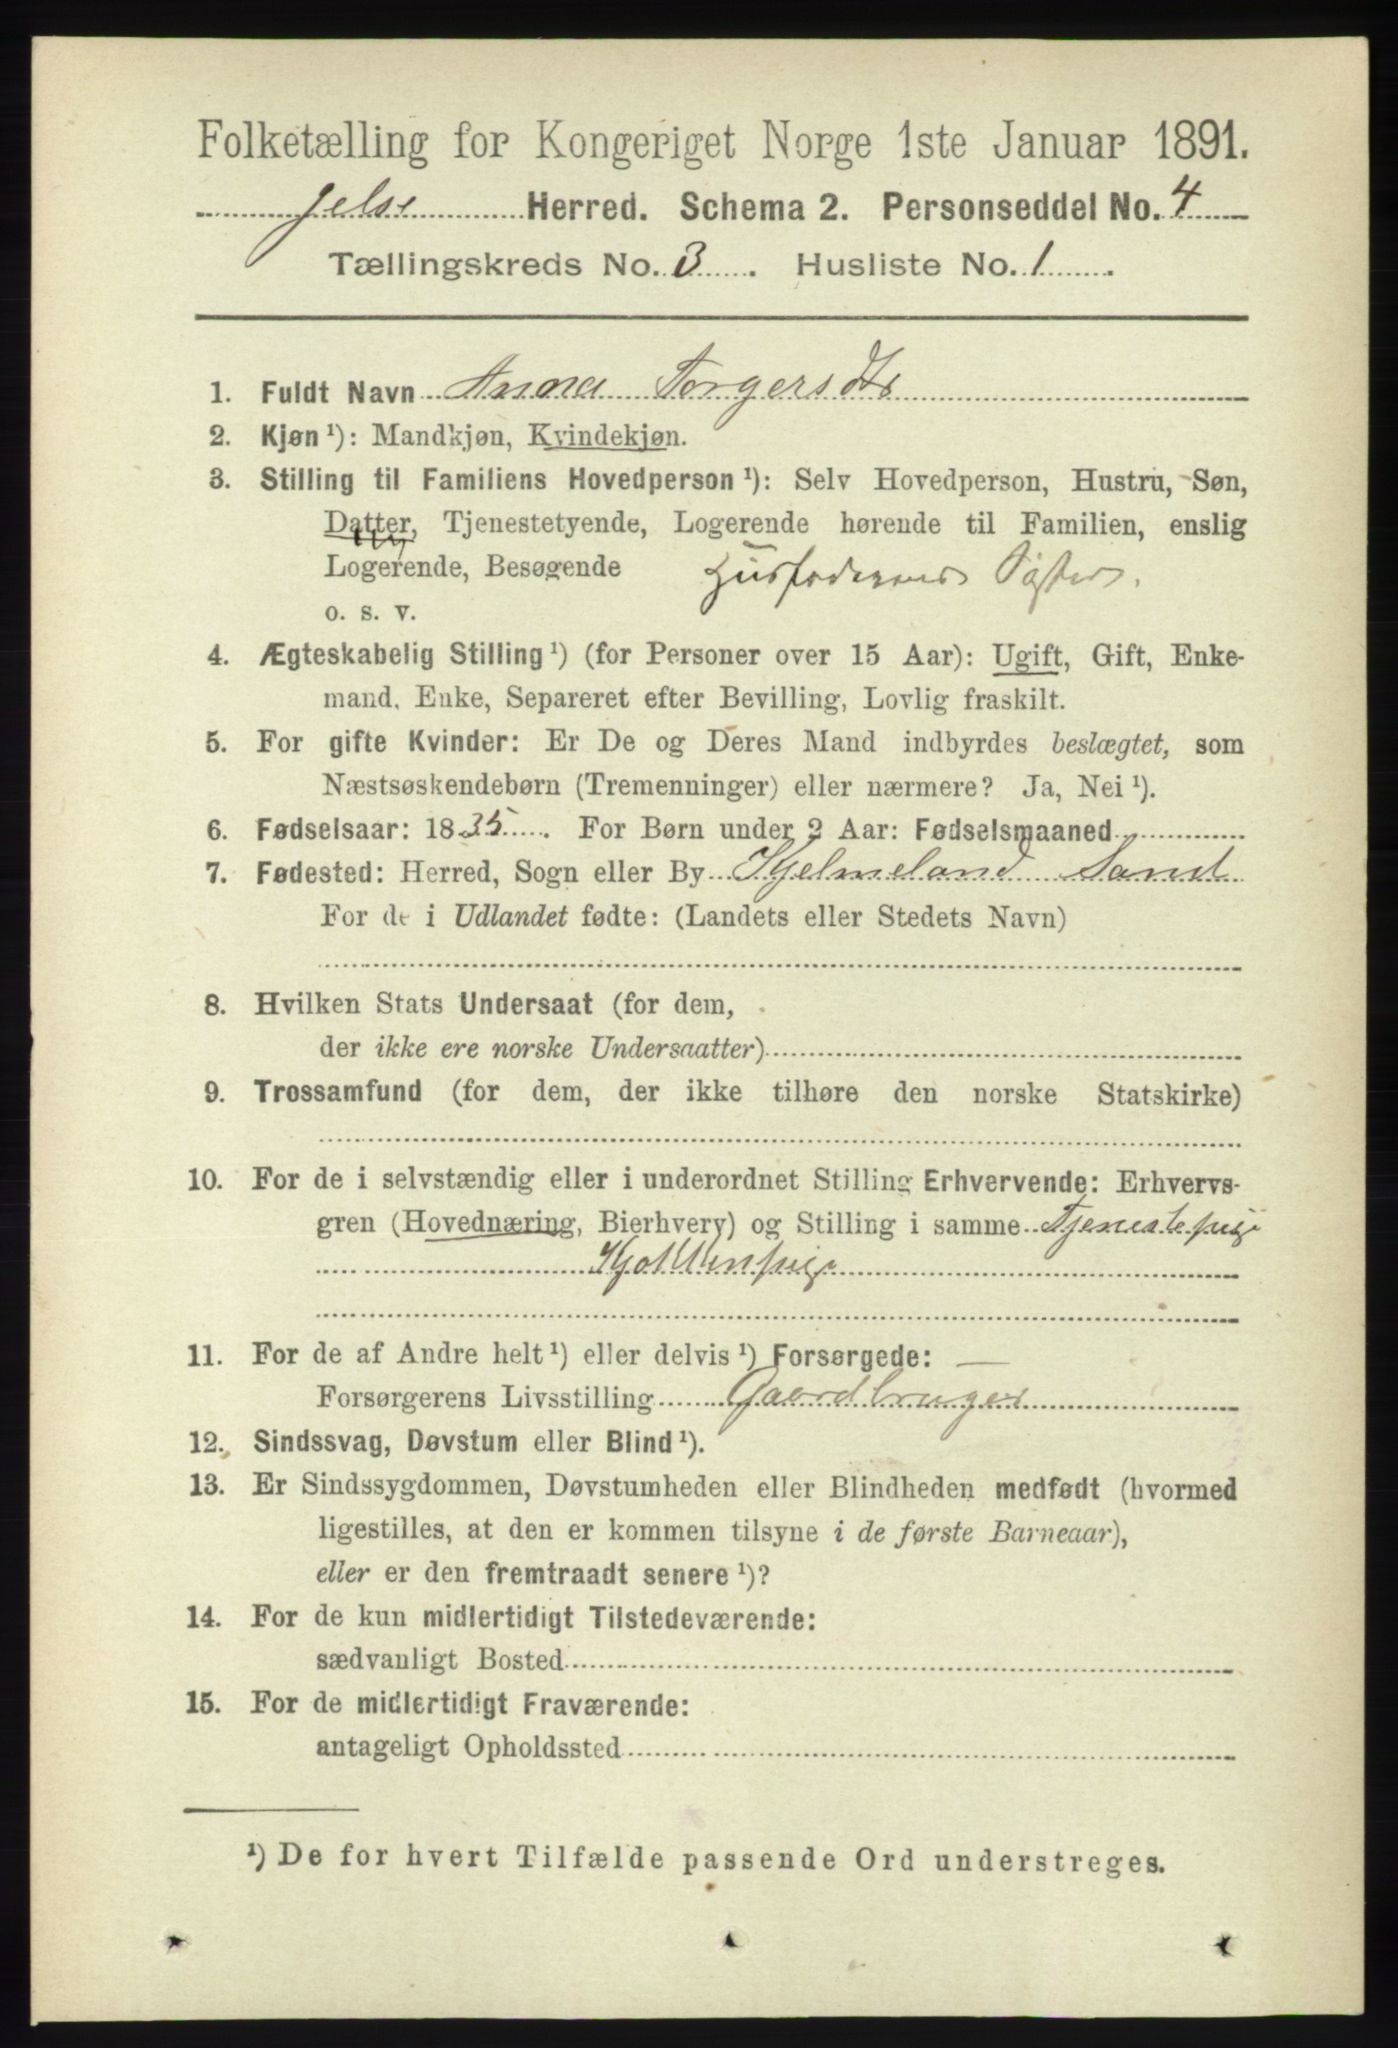 Folketælling for Kongeriget Norge 1ste Januar 1891.
Jelse Herred. Schema 2. Personseddel No. 4
Tællingskreds No. 3. Husliste No. 1.
1. Fuldt Navn Anna Torgersdtr
2. Kjøn ¹): Mandkjøn, Kvindekjøn.
3. Stilling til Familiens Hovedperson ¹): Selv Hovedperson, Hustru, Søn,
Datter, Tjenestetyende, Logerende hørende til Familien, enslig
Logerende, Besøgende Husfaderens Søster.
o. s. v.
4. Ægteskabelig Stilling ¹) (for Personer over 15 Aar): Ugift, Gift, Enke-
mand, Enke, Separeret efter Bevilling, Lovlig fraskilt.
5. For gifte Kvinder: Er De og Deres Mand indbyrdes beslægtet, som
Næstsøskendebørn (Tremenninger) eller nærmere? Ja, Nei ¹).
6. Fødselsaar: 1835. For Børn under 2 Aar: Fødselsmaaned
7. Fødested: Herred, Sogn eller By Hjelmeland Sand
For de i Udlandet fødte: (Landets eller Stedets Navn)
8. Hvilken Stats Undersaat (for dem,
der ikke ere norske Undersaatter)
9. Trossamfund (for dem, der ikke tilhøre den norske Statskirke)
10. For de i selvstændig eller i underordnet Stilling Erhvervende: Erhvervs-
gren (Hovednæring, Bierhverv) og Stilling i samme Tjenestepige
Kjøkkenpige
11. For de af Andre helt ¹) eller delvis ¹) Forsørgede: —
Forsørgerens Livsstilling Gaardbruger
12. Sindssvag, Døvstum eller Blind ¹).
13. Er Sindssygdommen, Døvstumheden eller Blindheden medfødt (hvormed
ligestilles, at den er kommen tilsyne i de første Barneaar),
eller er den fremtraadt senere ¹)?
14. For de kun midlertidigt Tilstedeværende:
sædvanligt Bosted
15. For de midlertidigt Fraværende:
antageligt Opholdssted
¹) De for hvert Tilfælde passende Ord understreges.